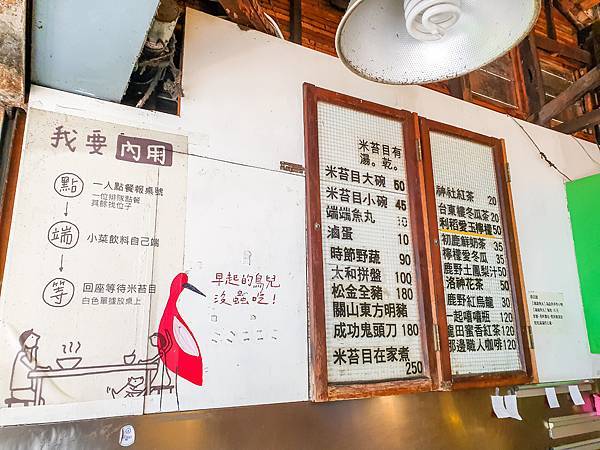 我要內用
點
一人點餐報桌號
一位排隊點餐
其餘找位子
端
小菜飲料自己端
等
回座等待米苔目
白色單據放桌上
早起的鳥兒
沒蟲吃!
米苔目有
湯。乾。
米苔目大碗 50
米苔目小碗 45
端端魚丸
滷蛋 10
時節野蔬 90
太和拼盤 100
松金全豬 180
關山東方明豬
成功鬼頭刀 180
米苔目在家煮 250
神社紅茶 20
台東樓冬瓜茶 20
利稻愛玉檸檬 50
初鹿鮮奶茶 35
檸檬愛冬瓜 35
鹿野土鳳梨汁 50
洛神花茶 50
鹿野紅烏龍 30
一起嘻嘻瓶 120
龍田蜜香紅茶 120
那邊職人咖啡 120